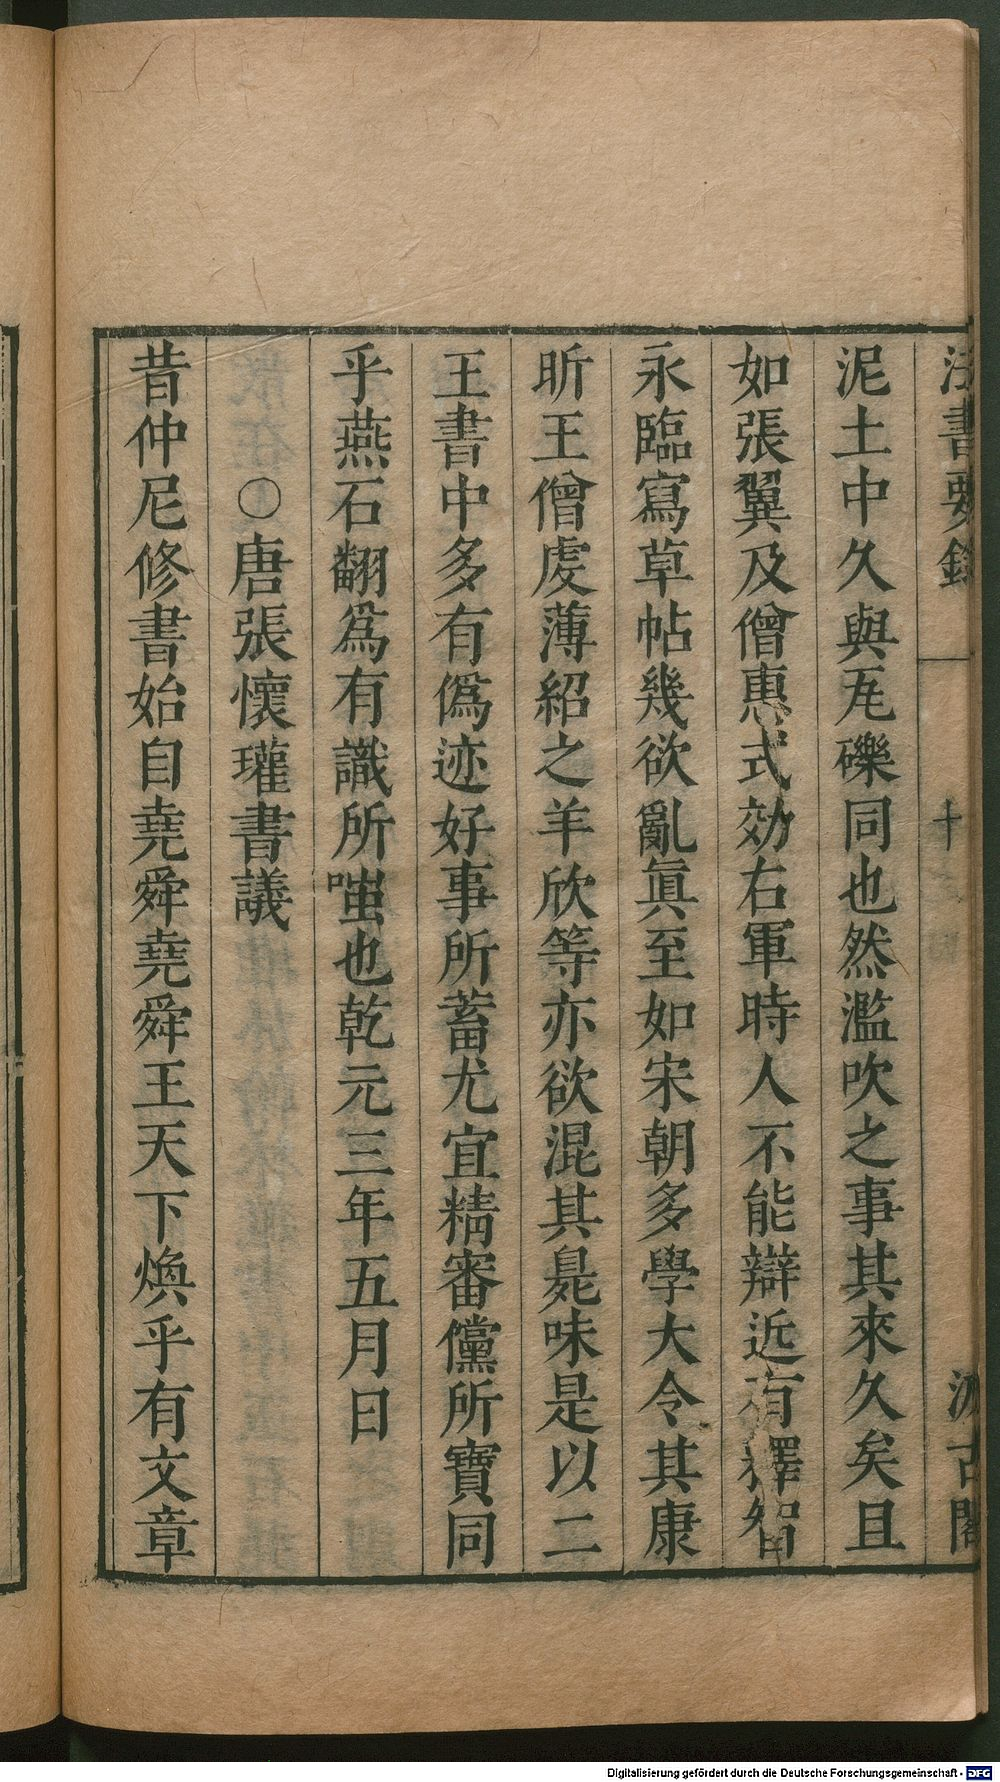 法書要錄
十
汲古閣
泥土中久與瓦礫同也然濫吹之事其來久矣且
如張翼及僧惠式効右軍時人不能辯近有釋智
永臨寫草帖幾欲亂眞至如宋朝多學大令其康
昕王僧虔薄紹之羊欣等亦欲混其臭味是以二
王書中多有僞迹好事所蓄尤宜精審儻所寶同
乎燕石翻爲有識所嗤也乾元三年五月日
○唐張懷瓘書議
昔仲尼修書始自堯舜堯舜王天下煥乎有文章
Digitalisierung gefördert durch die Deutsche Forschungsgemeinschaft - DFG